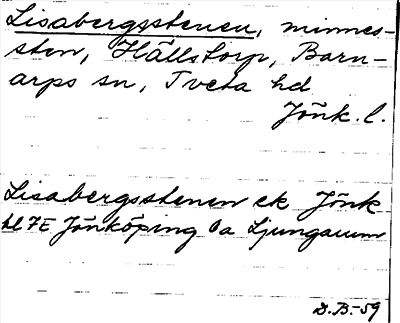 Lisabergsstenen, minnes-
sten, Hällstorp, Barn-
arps sn, Tveta hd
Jönk. l.
Lisabergsstenen ek Jönk
bl 7E Jönköping 0a Ljungarum
D.B.-59